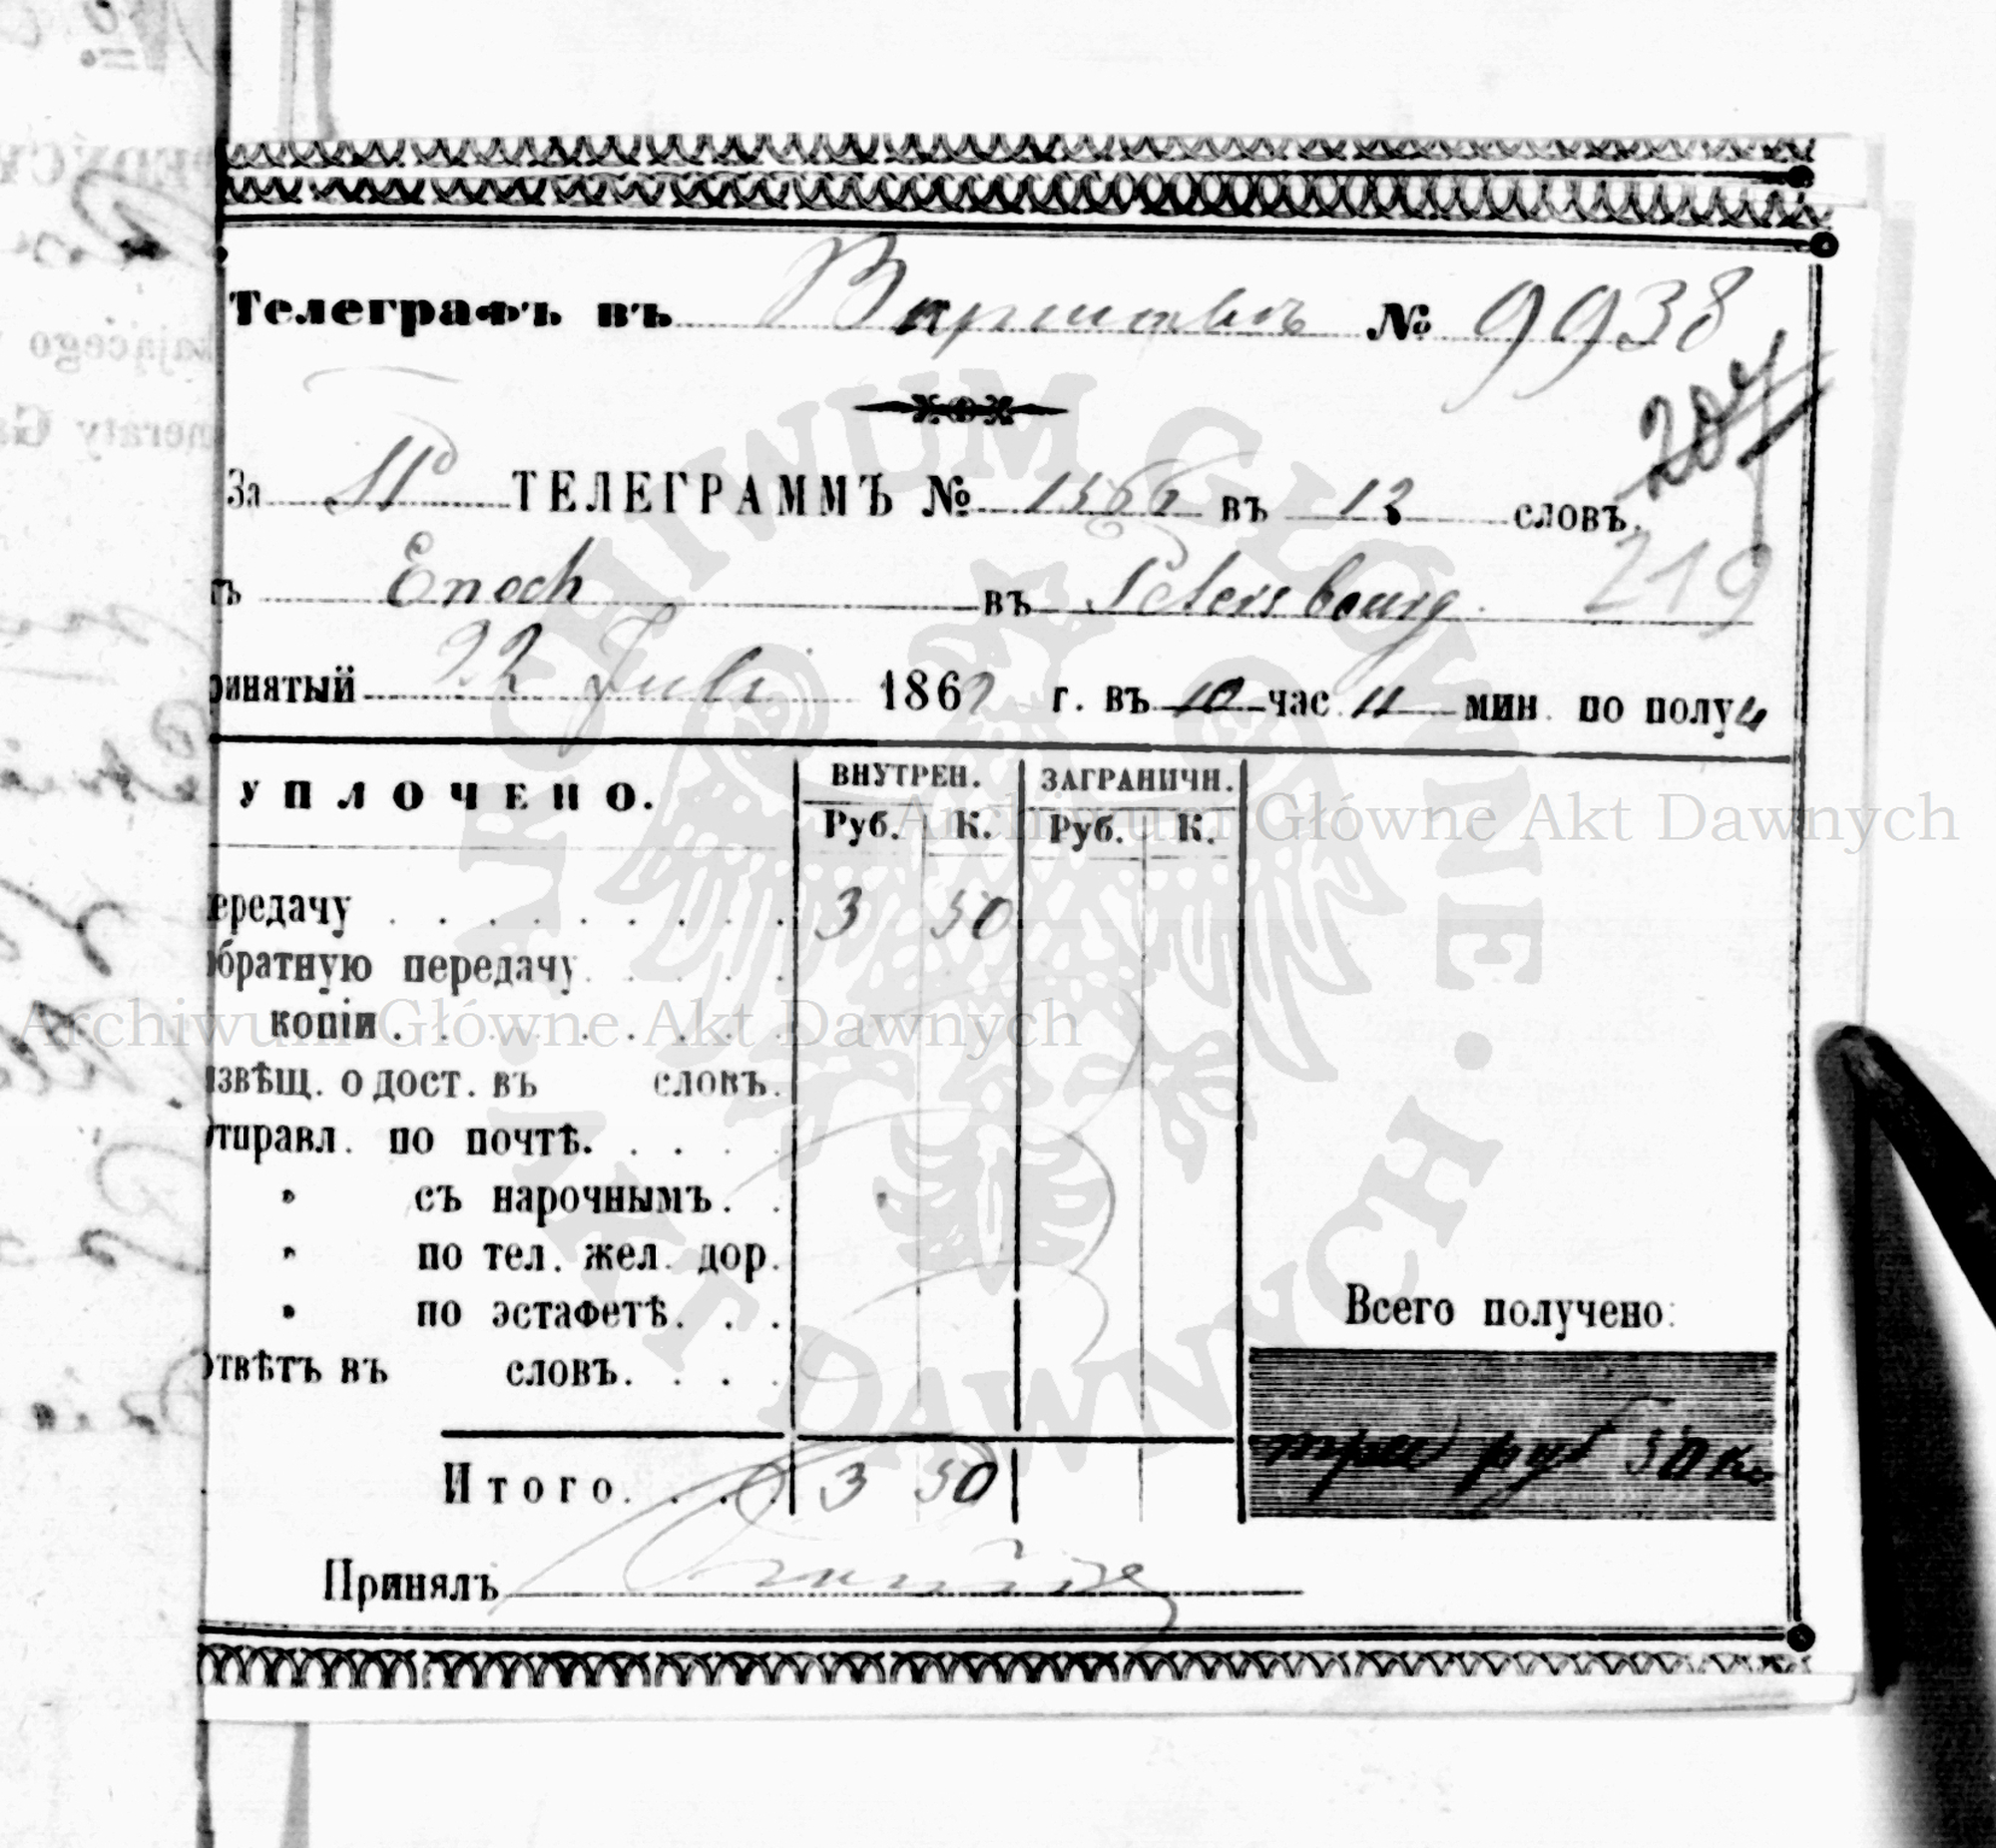 Телеграфъ въ Варшавѣ № 9938
207
За ТЕЛЕГРАММЪ № 1566 въ 13 словъ.
219
тъ Enoch въ Petersbourg.
ринятый 22 Juli 1862 г. въ 10 час. 11 мин. по полу
УПЛОЧЕНО. ВНУТРЕН. ЗАГРАНИЧН.
Руб. К. Руб. К.
ередачу . . . . . . . . 3 50
братную передачу . . . .
копіи . . . . . . .
извѣщ. о дост. въ словъ.
отправл. по почтѣ. . . .
" съ нарочнымъ. .
" по тел. жел. дор.
" по эстафетѣ. . .
Всего получено:
отвѣтъ въ словъ. . . .
три руб 50 к
Итого. . . . 3 50
Принялъ
Archiwum Główne Akt Dawnych
Archiwum Główne Akt Dawnych
ARCHIWUM GŁÓWNE · AKT DAWNYCH ·